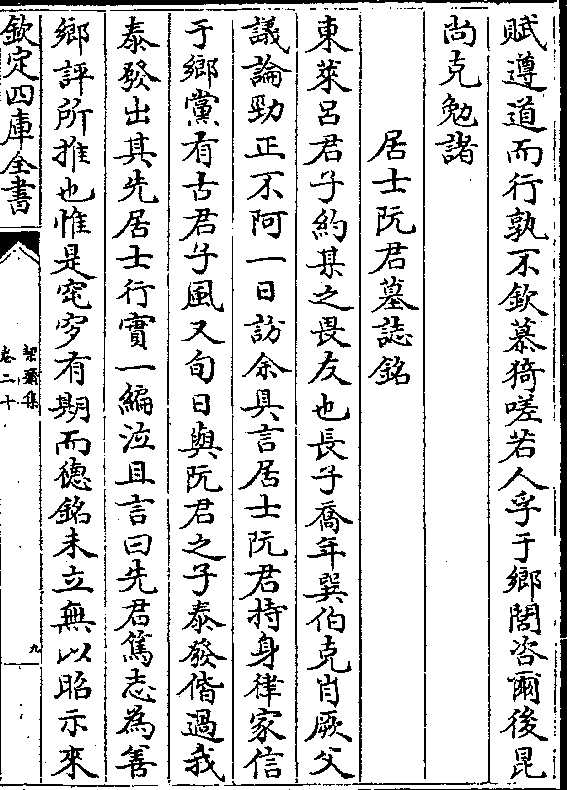 賦遵道而行孰不欽慕猗嗟若人孚于鄉閭咨爾後昆
尚克勉諸
居士阮君墓誌銘
東萊呂君子約某之畏友也長子喬年巽伯克肖厥父
議論勁正不阿一日訪余具言居士阮君持身律家信
于鄉黨有古君子風又旬日與阮君之子泰發偕過我
泰發出其先居士行實一編泣且言曰先君篤志為善
鄉評所推也惟是窀穸有期而德銘未立無以昭示來
欽定四庫全書
絜齋集
卷二十
九